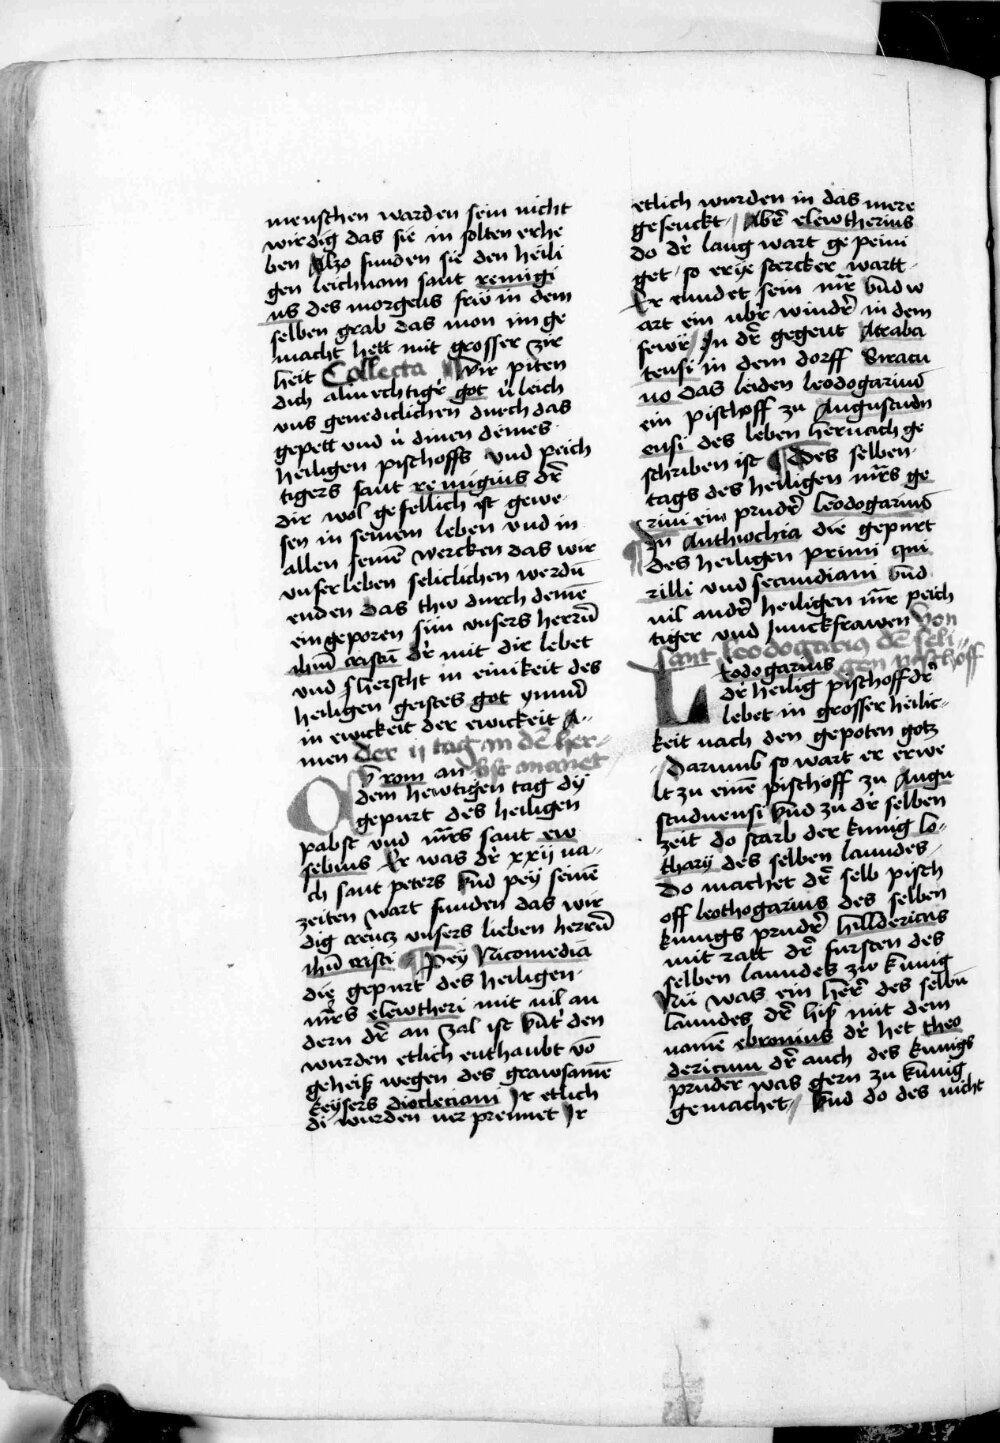 menschen warden sein nicht
wirdig das sie in solten erhe
ben Alzo funden sie den heili
gen leichnam sant remigi
us des morgens frw in dem
selben grab das mon im ge
macht hett mit grosser zir
heit Collecta Wir piten
dich almechtigr̄ got v̇leich
vns genediclichen durch das
gepett vnd v̇dinen deines
heiligen pischoffs vnd peich
tigers sant remigius dr̄
dir wol gefellich ist gewe
sen in seinem leben vnd in
allen seinē wercken das wir
vnser leben seliclichen werdn̄
enden das thw durch deinē
eingeporen sun vnsers herrn̄
ihm̄ cristū dr̄ mit dir lebet
vnd herscht in einikeit des
heiligen geistes got ymm̄
in ewickeit der ewickeit A
men der ij tag in dē her
bst monet
O rom an
dem hewtigen tag dy
gepurt des heiligen
pabst vnd mr̄s sant ew
sebius Er was dr̄ xxij na
ch sant peters vnd pey seinē
zeiten wart funden das wir
dig creucz vnsers lieben herrn̄
ihū cristi Pey Nicomedia
die gepurt des heiligen
mr̄s elewtheri mit vil an
dern dr̄ an zal ist vnt̄ den
wurden etlich enthaubt vō
geheiß wegen des grawsamē
keysers diocleciani Ir etlich
di wurden ver prennet Ir
etlich wurden in das mere
gesenckt Abr̄ elewtherius
do dr̄ lang wart gepeini
get so er ye stercker wartt
Er endet sein mr̄ vnd w
art ein vbr̄ windr̄ in dem
fewr̄ In dr̄ gegent Atraba
tensi in dem dorff Siracu
no das leiden leodogarius
ein pischoff zu Augustudn
ensi des leben hernach ge
schriben ist Des selben
tags des heiligen mr̄s ge
rini ein prudr̄ leodogarius
In Anthiochia die gepurt
des heiligen primi qui
rilli vnd secundiani vnd
vil andr̄ heiligen mr̄ peich
tiger vnd Junckfrawen Von
sant leodogariꝯ dē seli
gen pischoff
Leodogarius
dr̄ heilig pischoff dr̄
lebet in grosser heilic
keit nach den gepoten gotz
Darumb so wart er erwe
lt zu einē pischoff zu Augu
studuensi vnd zu dr̄ selben
zeit do starb der kunig lo
thary des selben lanndes
do machet dr̄ selb pisch
off leothogarius des selben
kunigs prudr̄ hilldericus
mit ratt dr̄ fursten des
selben lanndes zw kunig
Nu was ein herr̄ des selbn̄
lanndes dr̄ hiß mit dem
namē ebronius dr̄ het theo
dericum dr̄ auch des kunigs
pruder was gern zu kunig
gemachet vnd do des nicht